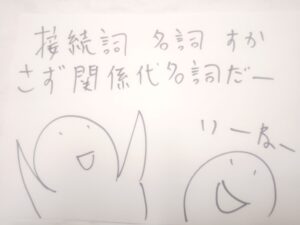 接続詞 名詞 すか
さず関係代名詞だー
いーねー